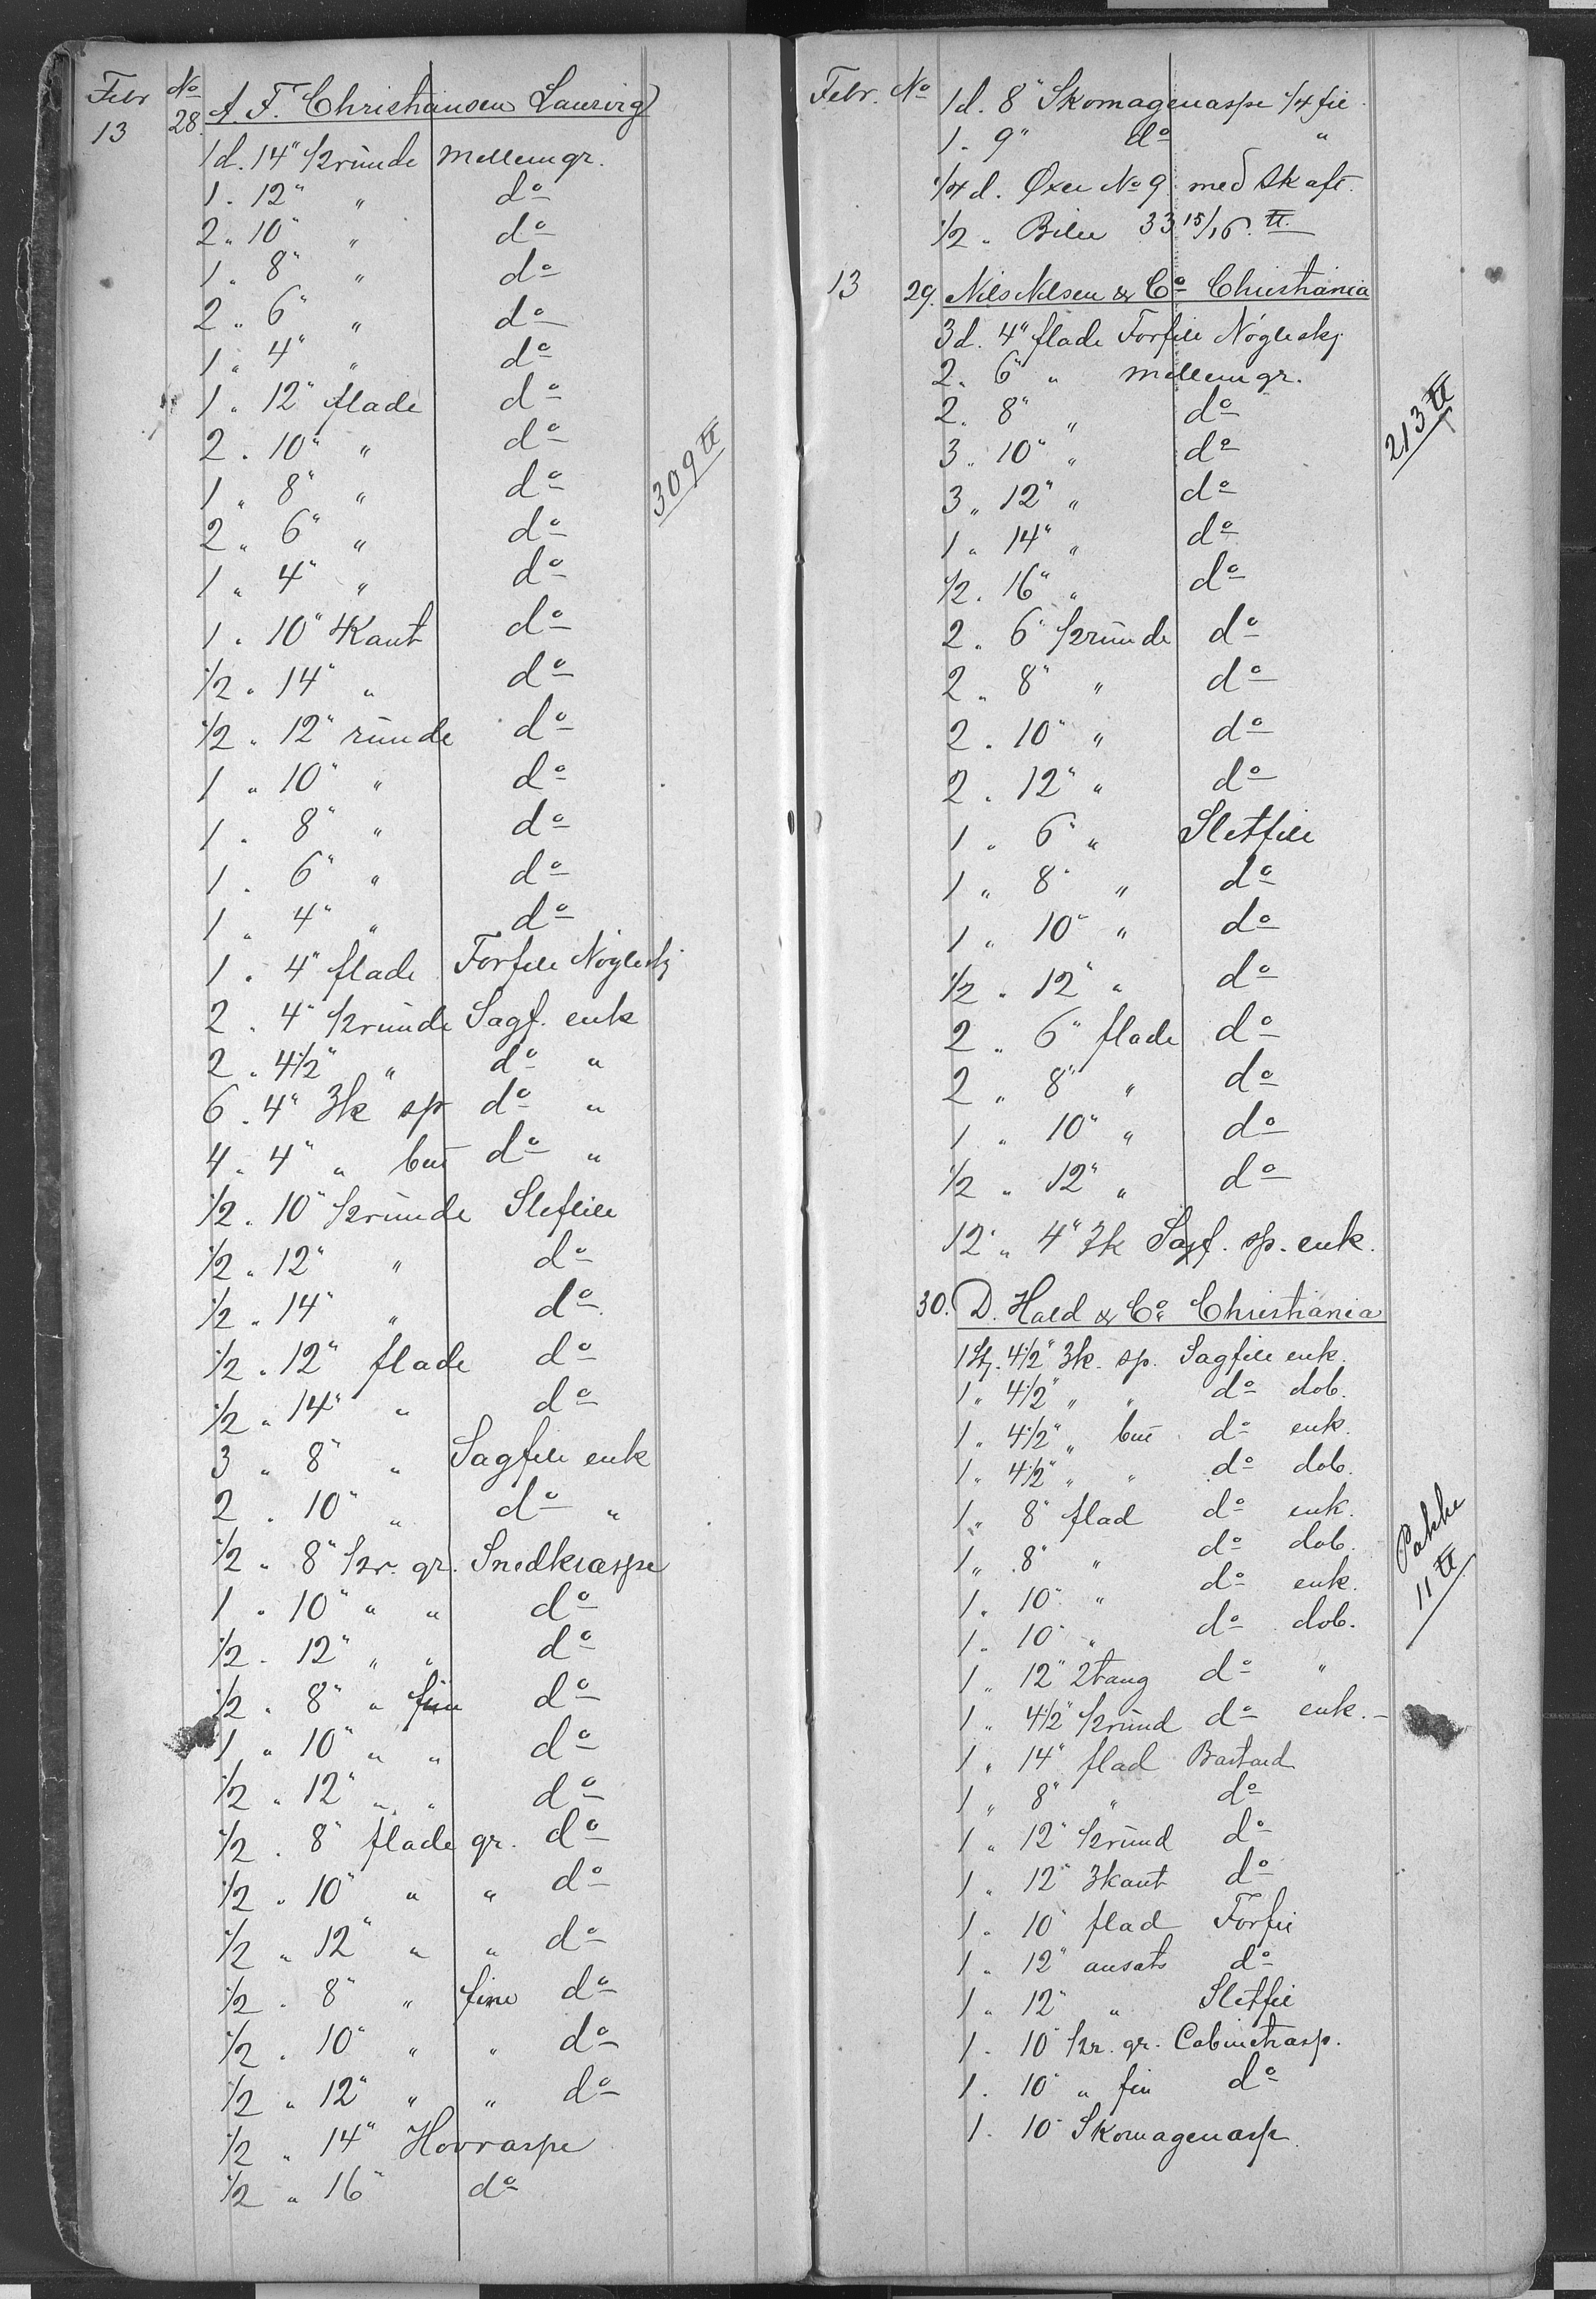 Febr No
13 28. A. F. Christiansen Laurvig
1 d. 14" 1/2 runde mellemgr.
1 . 12" " do
2 " 10" " do
1 " 8" " do
2 " 6" " do
1 " 4" " do
1 " 12" flade do
2 . 10" " do
1 " 8" " do
2 " 6" " do
1 " 4" " do
1 " 10" 4Kant do
1/2 " 14" " do
1/2 " 12" runde do
1 " 10" " do
1 . 8" " do
1 . 6" " do
1 " 4" " do
1 . 4" flade Forfile Nögleskj
2 . 4" 1/2runde Sagf. enk
2 . 4 1/2" " do "
6 . 4" 3k sp do "
4 . 4" " but do "
1/2 . 10" 1/2runde Sletfile
1/2 . 12" " do
1/2 . 14" " do
1/2 . 12" flade do
1/2 . 14" " do
3 " 8" " Sagfile enk
2 . 10" " do "
1/2 " 8" 1/2r. gr. Snedkraspe
1 " 10" " " do
1/2 . 12" " " do
1/2 . 8" " fine do
1 " 10" " " do
1/2 . 12" " " do
1/2 . 8" flade gr. do
1/2 . 10" " " do
1/2 " 12" " " do
1/2 . 8" " fine do
1/2 . 10" " " do
1/2 " 12" " " do
1/2 " 14" Hovraspe
1/2 " 16" do
309 ℔
Febr. No
1 d. 8" Skomagerraspe 1/4 fil
1 . 9" do "
1/4 d. Øxer No 9 med Skaft.
1/2 " Biler 33 15/16 ℔
13 29. Nils Nilsen & Co Christiania
3 d. 4" flade Forfile Nögleskj
2 . 6" " mellemgr.
2 . 8" " do
3 . 10" " do
3 " 12" " do
1 " 14" " do
1/2 . 16" " do
2 . 6" 1/2runde do
2 " 8" " do
2 . 10" " do
2 . 12" " do
1 " 6" " Sletfile
1 " 8" " do
1 " 10" " do
1/2 . 12" " do
2 . 6" flade do
2 " 8" " do
1 " 10" " do
1/2 " 12" " do
12 " 4" 3k Sagf. sp. enk.
213 ℔
30. D. Hald & Co Christiania
1 St. 4 1/2" 3k. sp. Sagfile enk.
1 " 4 1/2" " " do dob.
1 " 4 1/2" " but do enk.
1 " 4 1/2" " " do dob.
1 " 8" flad do enk.
1 " 8" " do dob.
1 " 10" " do enk.
1 " 10" " do dob.
1 " 12" 2tang do "
1 " 4 1/2" 1/2rund do enk. –
1 " 14" flad Bastard
1 " 8" " do
1 " 12" 1/2rund do
1 " 12" 3kant do
1 . 10" flad Forfil
1 " 12" ansats do
1 " 12" " Sletfil
1 . 10" 1/2r. gr. Cabinetrasp.
1 . 10" " fin do
1 . 10" Skomagerrasp.
Pakke
11 ℔